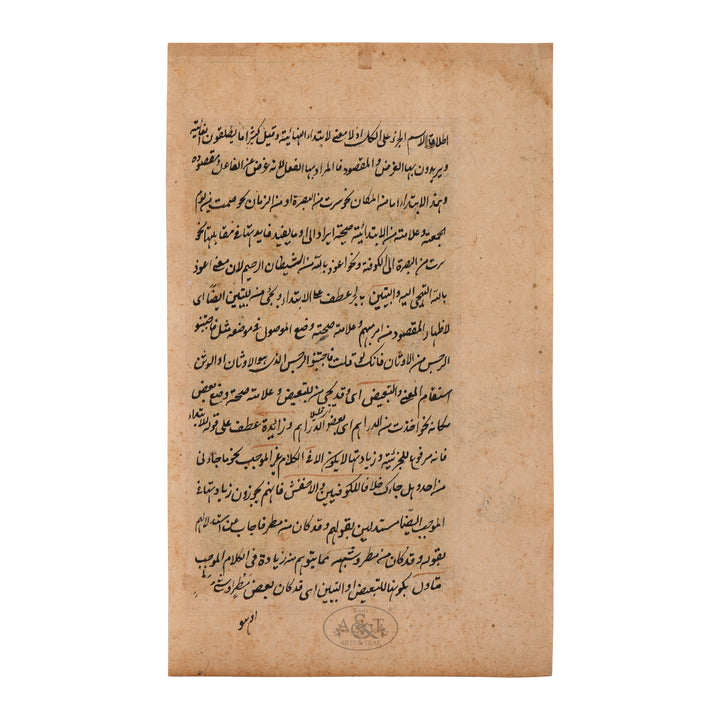 اطلاقا لاسم الجزء على الكل اذ لا معنى لابتداء النهائية وقيل كثيرا ما يطلقون الغاية
ويريدون بها الغرض والمقصود فالمراد بها الفعل لانه غرض من الفاعل ومقصوده
وهذا الابتداء اما من المكان نحو سرت من البصرة او من الزمان نحو صمت من يوم
الجمعة وعلامة من الابتدائية صحة ايراد الى او ما يفيد فايدتها في مقابلتها نحو
سرت من البصرة الى الكوفة ونحو اعوذ بالله من الشيطان الرجيم لان معنى اعوذ
بالله التجى اليه والتبيين بالجر عطف على الابتداء ويجى من للتبيين ايضا اى
لاظهار المقصود من امر مبهم وعلامته صحة وضع الموصول في موضعه مثل فاجتنبوا
الرجس من الاوثان فانك لو قلت فاجتنبوا الرجس الذى هو الاوثان او الوثن
استقام المعنى والتبعيض اى وقد يجى من للتبعيض وعلامته صحة وضع بعض
مكانه نحو اخذت من الدراهم اى بعض الدراهم وزائدة عطف على قوله للابتداء
فانه مرفوع للخبرية وزيادتها لا يكون الا في الكلام غير الموجب نحو ما جاءنى
من احد وهل جاءك خلافا للكوفيين والاخفش فانهم يجوزون زيادتها في
الموجب ايضا مستدلين بقولهم وقد كان من مطر فاجاب عن استدلالهم
بقوله وقد كان من مطر وشبهه مما يتوهم منه زيادة في الكلام الموجب
متاول بكونها للتبعيض او التبيين اى قد كان بعض مطر او شئ من مطر
او هو
RAJ
A & T
ARTS & TEAK